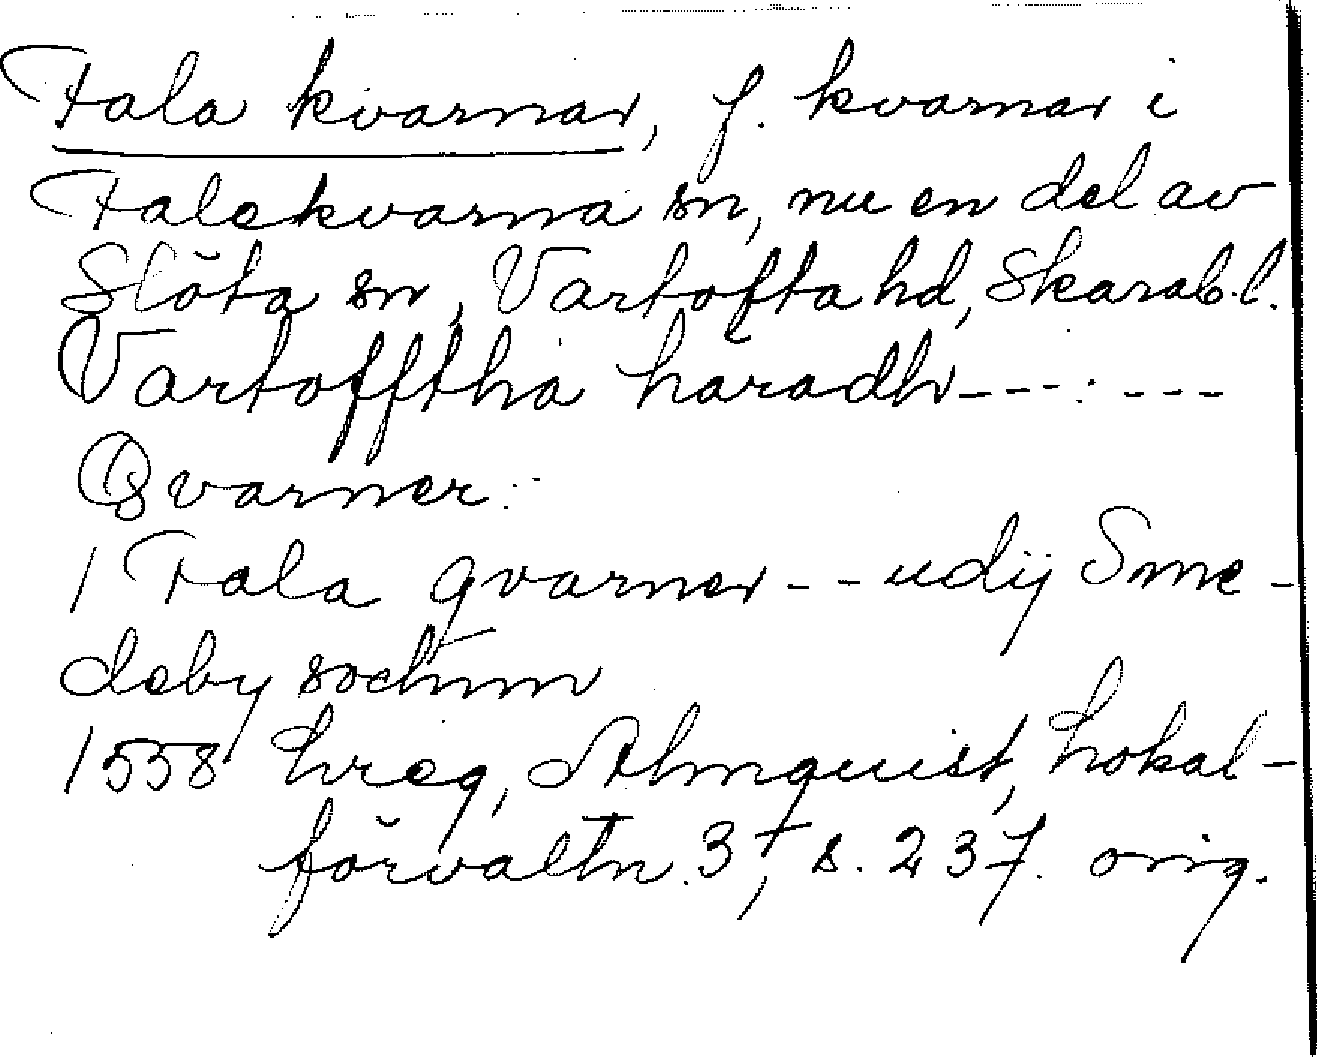 Fala kvarnar, f. kvarnar i
Falekvarna sn, nu en del av
Slöta sn, Vartofta hd, Skarab. l.
Vartofftha häradh---:---
Qvarner:-
1 Fala qvarner -- udij Sme-
deby sochnn
1558 hreg, Almquist, Lokal-
förvaltn. 3, s. 237. orig.